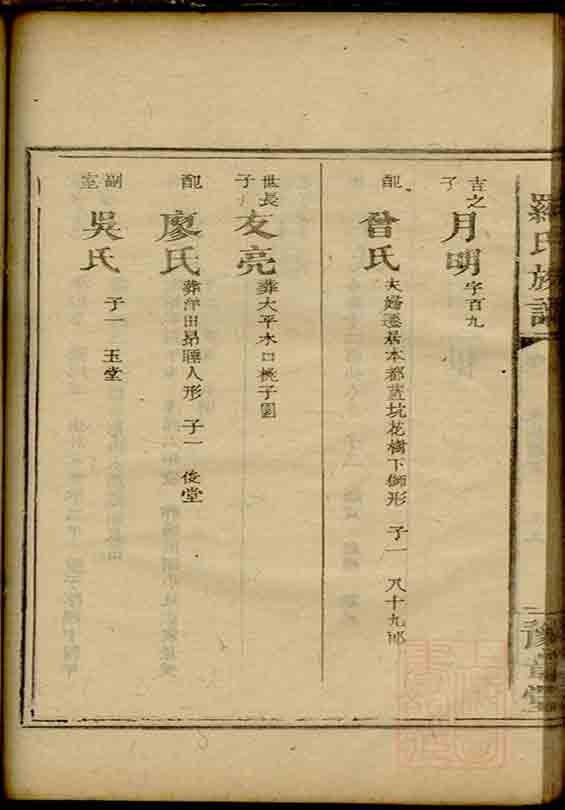 羅氏族譜
豫章堂
吉之子 月明 字百九
配 曾氏 夫婦遷居本都藍坑花樹下獅形 子一 八十九郎
世長子 友亮 葬大平水口桃子園
配 廖氏 葬洋田昂睡人形 子一 俊堂
副室 吳氏 子一 玉堂